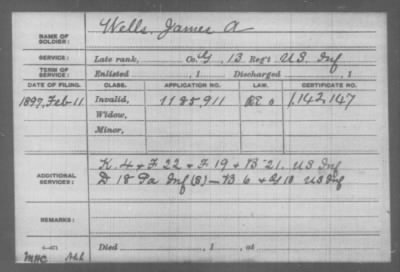 NAME OF SOLDIER: Wells, James A
SERVICE: Late rank, Co. G, 13 Reg't U.S. Inf
TERM OF SERVICE: Enlisted , 1 Discharged , 1
DATE OF FILING. CLASS. APPLICATION NO. LAW. CERTIFICATE NO.
1897, Feb 11 Invalid, 1185,911 1,142,147
Widow,
Minor,
ADDITIONAL SERVICES: K. 4 & F 22 & F 19 & B 21. US Inf
D 18 Pa Inf (S) — B 6 & G 10 US Inf
REMARKS:
Died , 1 , at